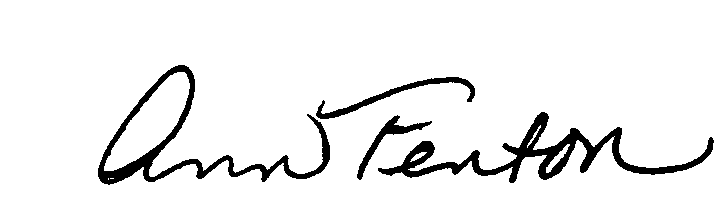 Ann Fenton